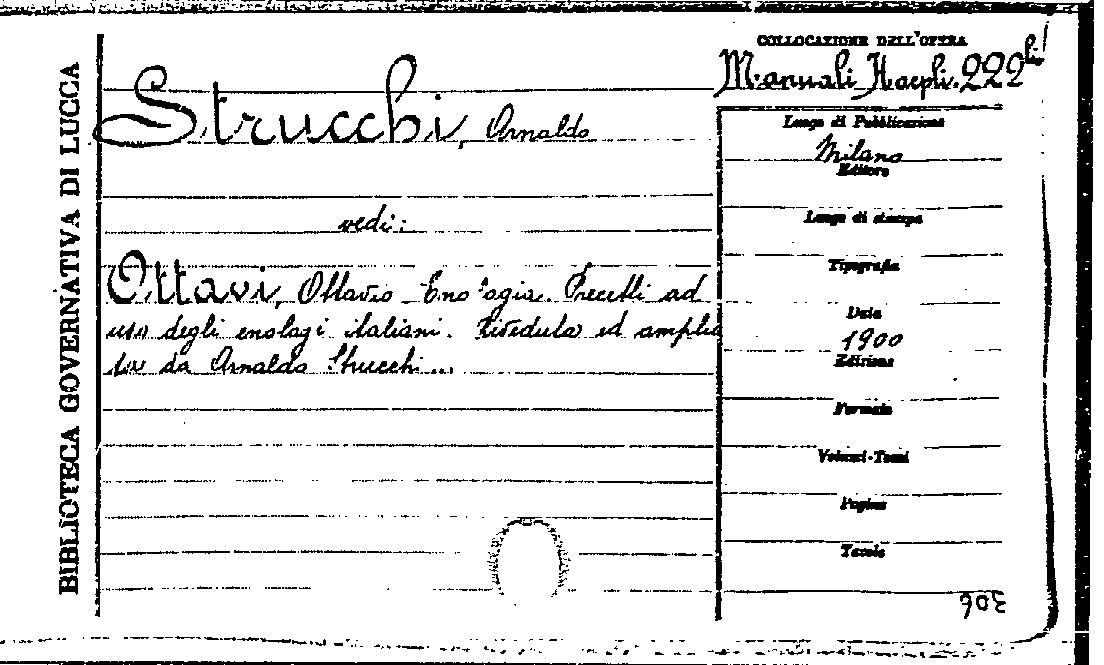 BIBLIOTECA GOVERNATIVA DI LUCCA
COLLOCAZIONE DELL'OPERA
Manuali Hoepli. 222 bis
Strucchi, Arnaldo
Luogo di Pubblicazione
Milano
Editore
vedi:
Luogo di stampa
Ottavi, Ottavio Enologia. Precetti ad
uso degli enologi italiani. Riveduta ed amplia
ta da Arnaldo Strucchi...
Tipografia
Data
1900
Edizione
Formato
Volumi-Tomi
Pagine
Tavole